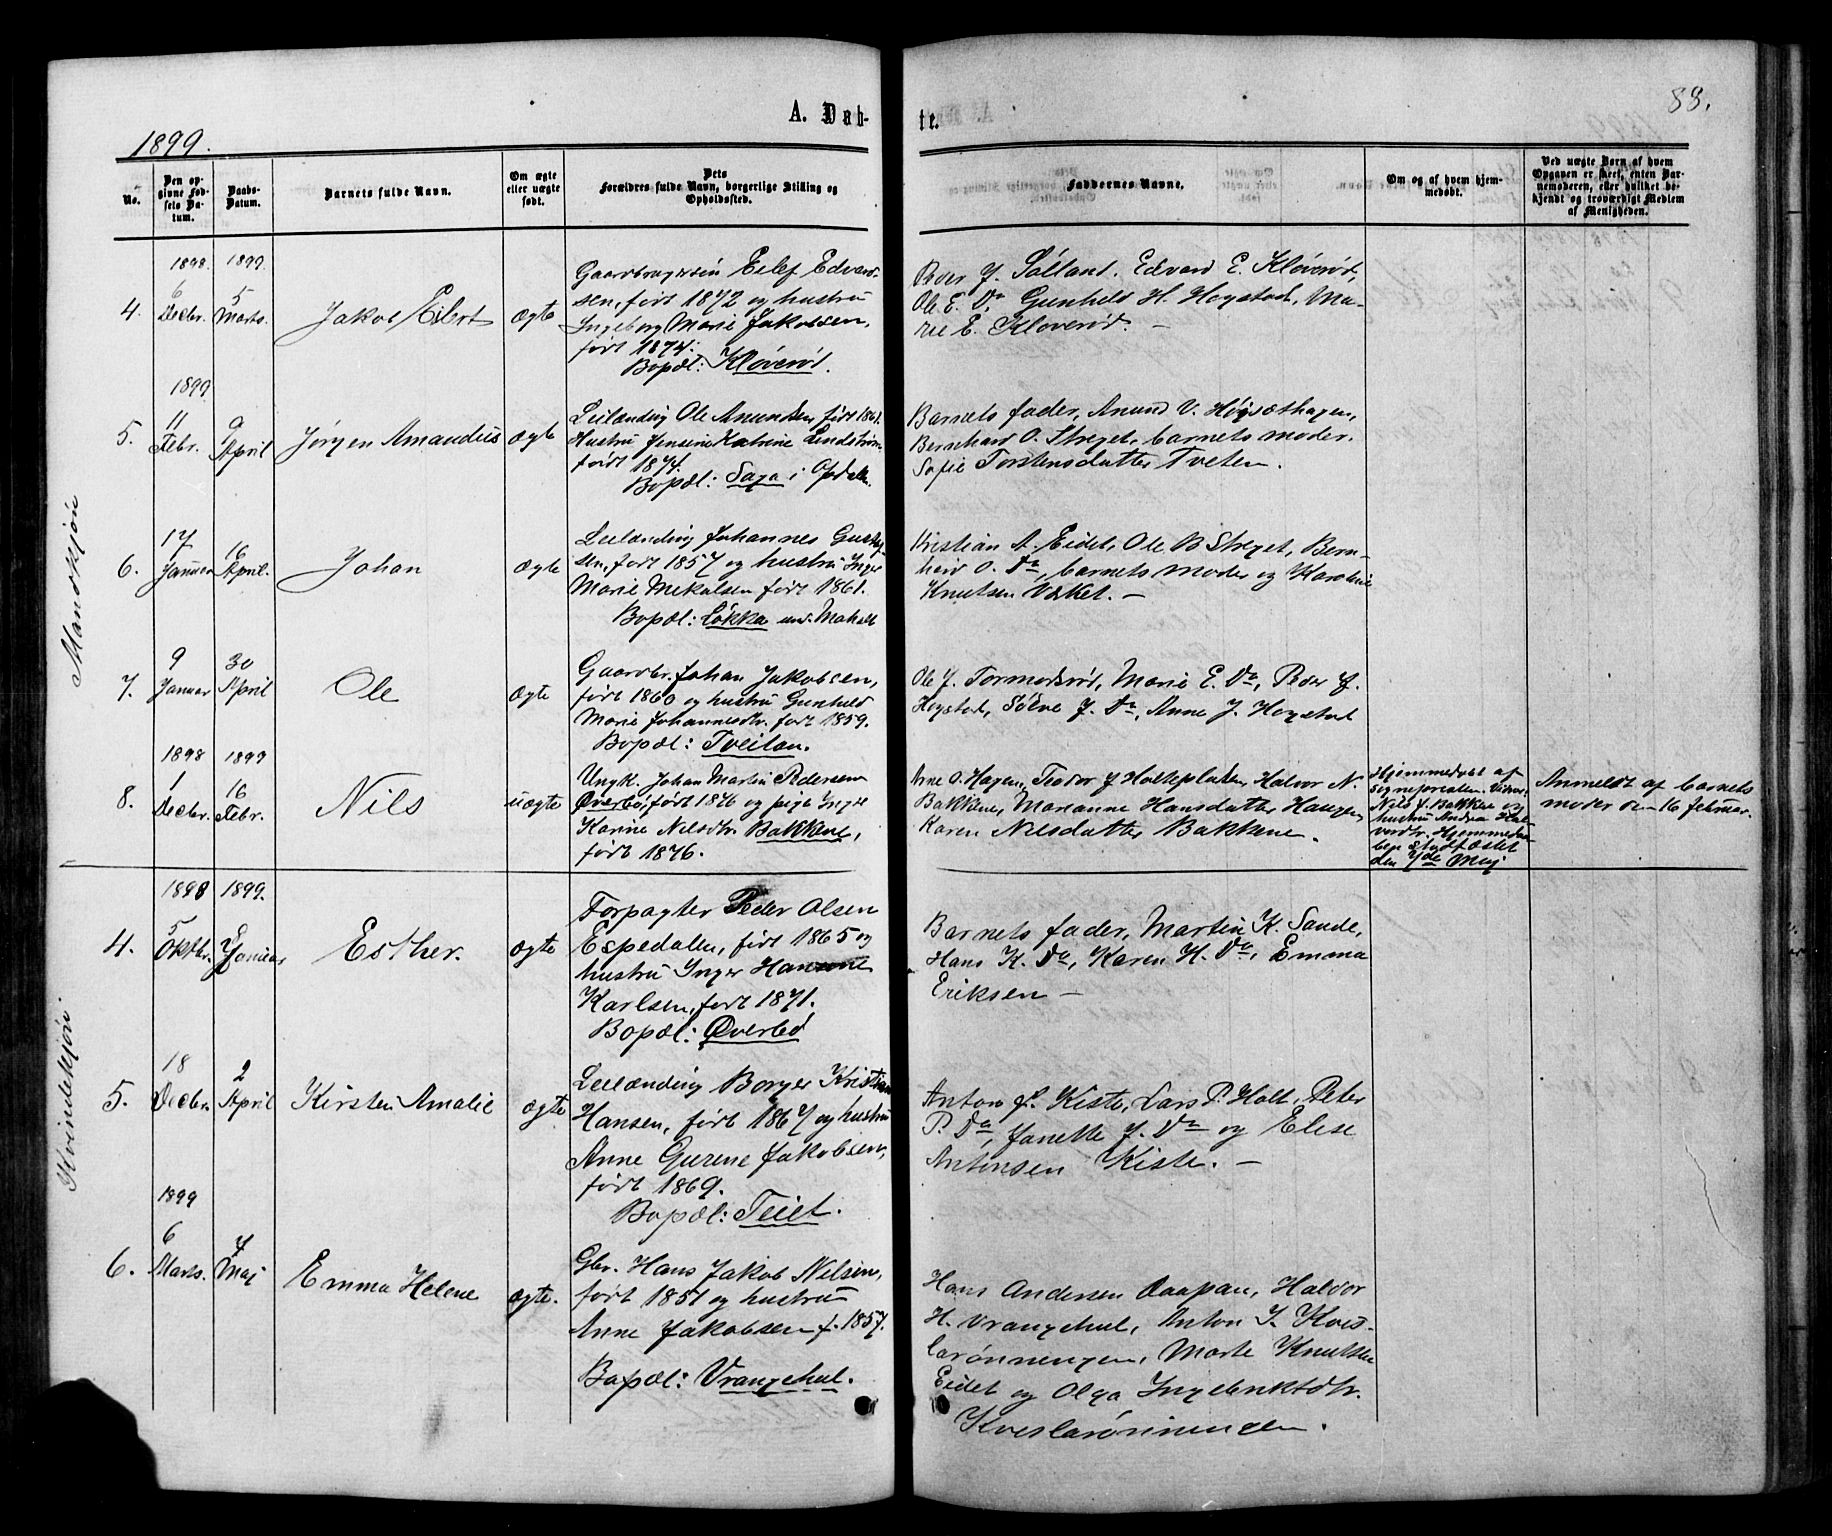 A. Døb-
te.
88.
1899.
No.
Den op-
givne Fød-
sels Da-
tum.
Daabs-
Datum.
Barnets fulde Navn.
Om ægte
eller uægte
født.
Dets
Forældres fulde Navn, borgerlige Stilling og
Opholdssted.
Faddernes Navne.
Om og af hvem hjem-
medøbt.
Ved uægte Børn af hvem
Opgaven er skeet, enten Bar-
nemoderen, eller hvilket be-
kjendt og troværdigt Medlem
af Menigheden.
Mandkjøn
4.
1898.
6
Decbr.
1899.
5
Marts.
Jakob Eilert
ægte
Gaardbrugersøn Eilef Edvard-
sen, født 1872 og hustru
Ingeborg Marie Jakobsen,
født 1874.
Bopæl: Kløverød.
Peder J. Sølland. Edvard E. Kløverød,
Ole E. Do, Gunhild H. Hogstad, Ma-
rie E. Kloverød. —
5.
1899
11
Febr.
9
April
Jørgen Amandus
ægte
Leilænding Ole Anundsen, født 1861.
Hustru Jensine Katrine Lindstrøm
født 1874.
Bopæl: Saga i Opdalen.
Barnets fader, Anund V. Høgsæthagen,
Bernhard O. Stræget, barnets moder.
Sofie Torstensdatter Tveten.
6.
17
Januar
16
April.
Johan
ægte
Leilænding Johannes Gustaf-
sen, født 1857 og hustru Inger
Marie Mikalsen født 1861.
Bopæl: Løkka und. Maholt
Kristian A. Eidet, Ole B Stræget, Bern-
hard O. Do, barnets moder og Karoline
Knutsen Vaket. —
7.
9
Januar
30
April
Ole
ægte
Gaardbr. Johan Jakobsen,
født 1860 og hustru Gunhild
Marie Johannesdtr. født 1859.
Bopæl: Tveitan.
Ole J. Tormodsrød, Marie E. Do, Peder J.
Hogstad, Sølve J. Do, Anne J. Hogstad
8.
1898
1
Decbr.
1899
16
Febr.
Nils
uægte
Ungk. Johan Martin Pedersen
Øverbø, født 1876 og pige Inger
Karine Nilsdtr. Bakkene,
født 1876.
Arne O. Hagen, Teodor J Holteplaten, Halvor N.
Bakkene, Marianne Hansdatter Haugen,
Karen Nilsdatter Bakkene.
Hjemmedøbt af
Nils J. Bakkene og
hustru Andrea Hal-
vordtr. Hjemmedaa-
ben stadfæstet
den 7de Maj
Anmeldt af barnets
moder den 16 februar.
Kvindekjøn.
4.
1898
5
Oktbr.
1899.
8
Januar
Esther.
ægte
Forpagter Peder Olsen
Espedalen, født 1865 og
hustru Inger Hansine
Karlsen, født 1871.
Bopæl: Øverbø
Barnets fader, Martin K. Sande,
Hans K. Do, Karen H. Do, Emma
Eriksen —
5.
18
Decbr.
2
April
Kirsten Amalie
ægte
Leilænding Borger Kristian
Hansen, født 1867 og hustru
Anne Gurene Jakobsen,
født 1869.
Bopæl: Teiet.
Anton J. Kiste, Lars P. Holt, Peter
P. Do, Janette J. Do og Elise
Antonsen Kiste. —
6.
1899
6
Marts.
7
Maj
Emma Helene
ægte.
Gbr. Hans Jakob Nilsen,
født 1851 og hustru
Anne Jakobsen f. 1857.
Bopæl: Vrangehul.
Hans Andersen Aaapan, Haldor
H. Vrangehul, Anton I. Kves-
larønningen, Marte Knutsen
Eidet og Olga Ingebriktsdtr.
Kveslarønningen.